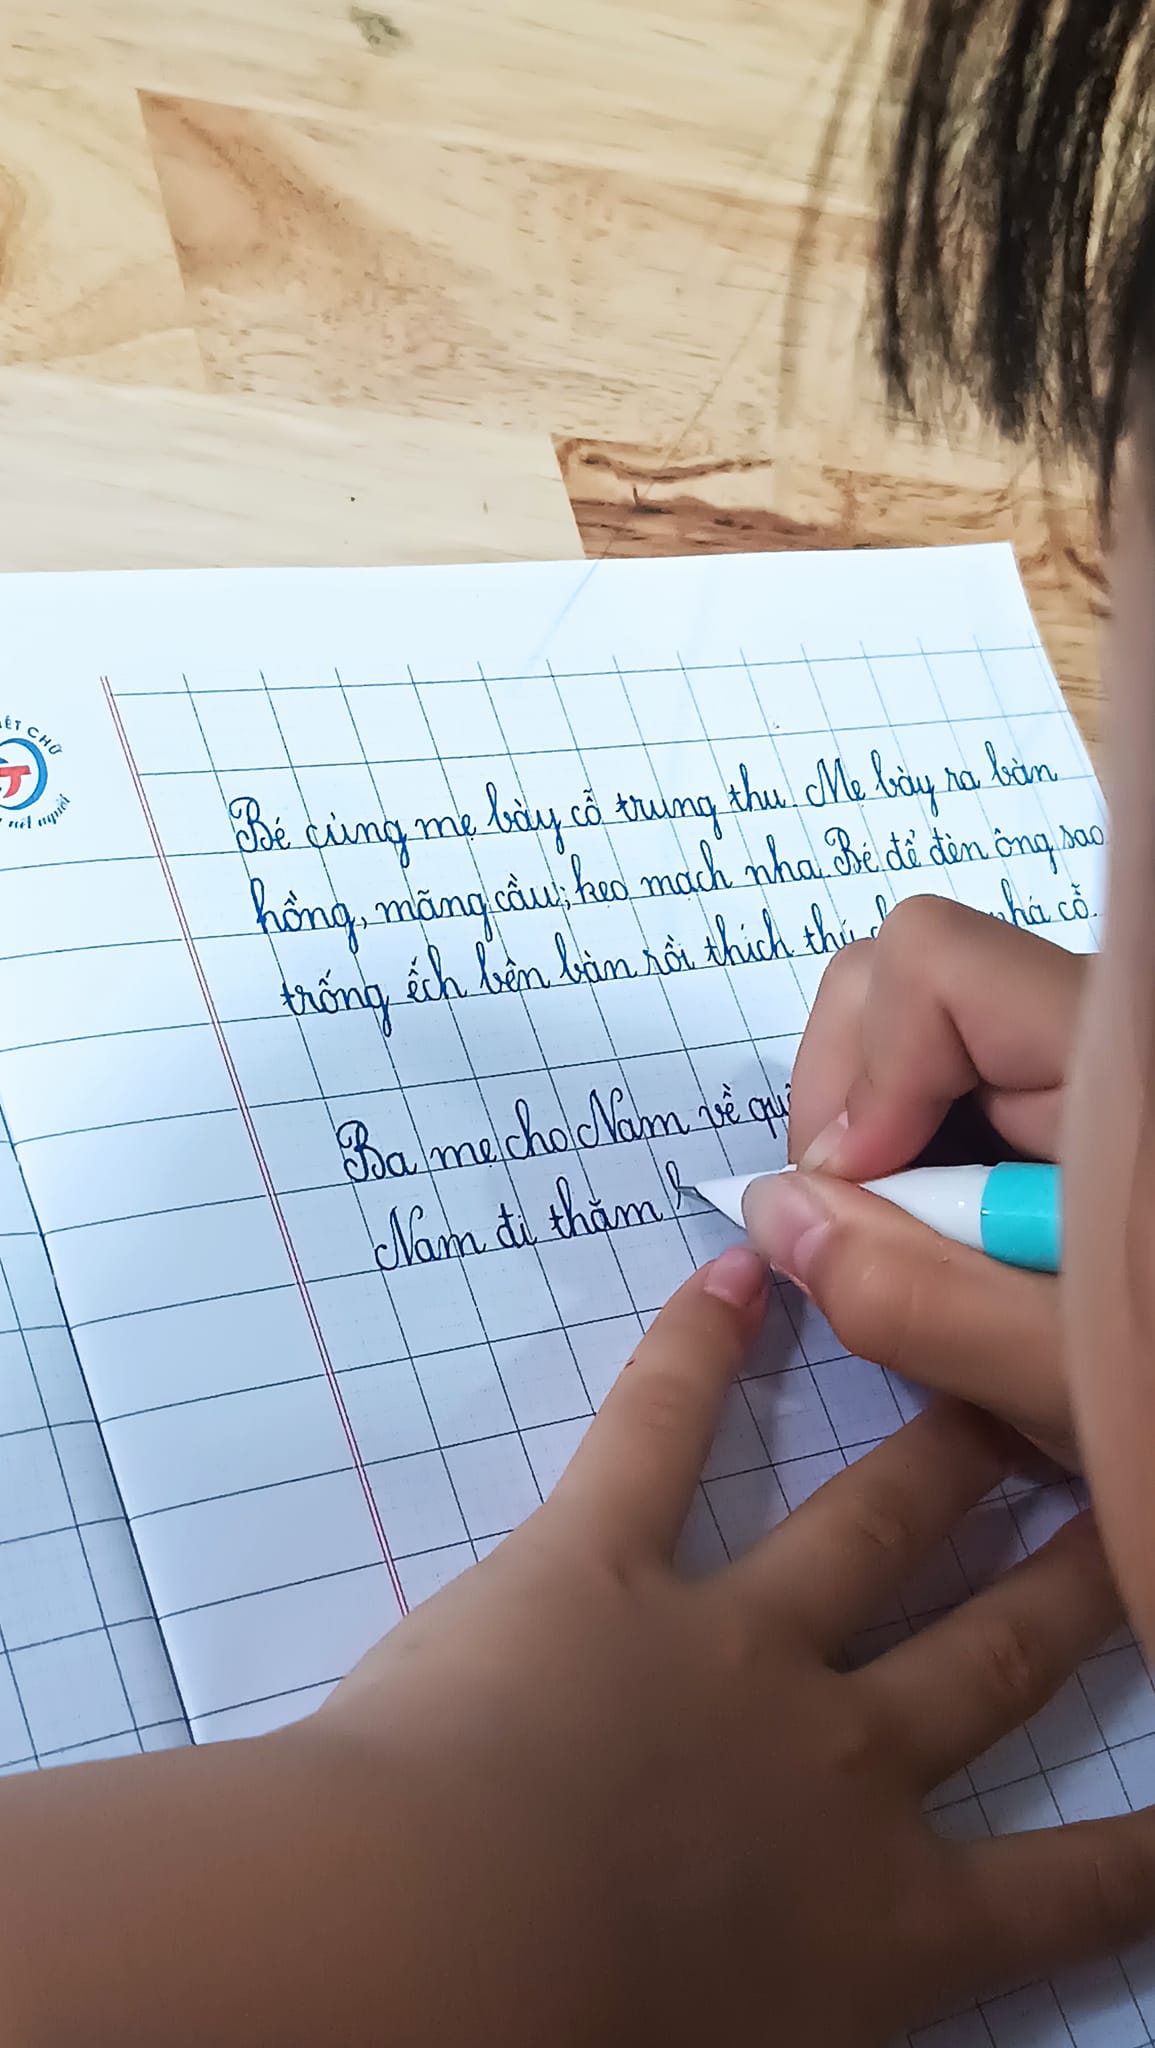 ÉT CHỮ
nết người
Bé cùng mẹ bày cỗ trung thu. Mẹ bày ra bàn
hồng, mãng cầu, kẹo mạch nha. Bé để đèn ông sao
trống ếch bên bàn rồi thích thú phá cỗ.
Ba mẹ cho Nam về
Nam đi thăm